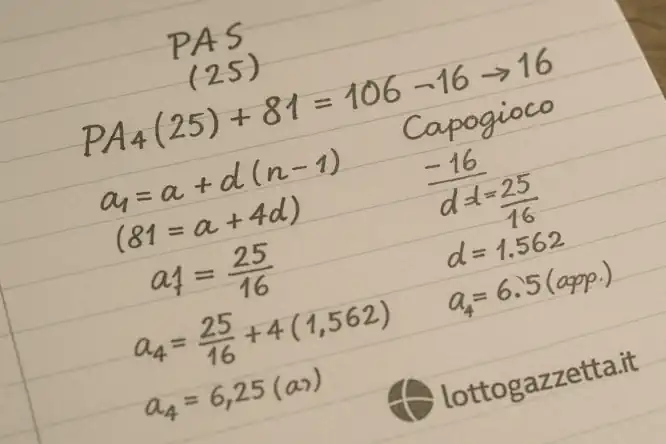 PAS
(25)
PA4(25) + 81 = 106 -16 → 16
Capogioco
a1 = a + d (n - 1)
(81 = a + 4d)
a1 = 25/16
a4 = 25/16 + 4 (1,562)
a4 = 6,25 (a)
-16
d d = 25/16
d = 1.562
a4 = 6.5 (app.)
lottogazzetta.it